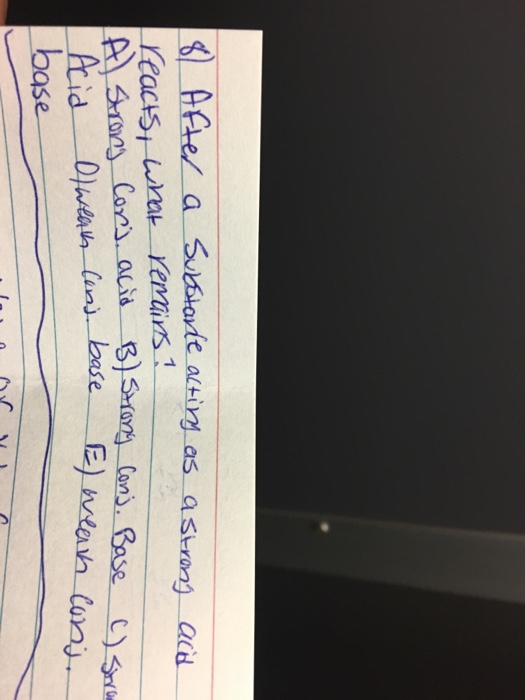 8) After a Substance acting as a strong acid
reacts, what remains?
A) Strong Conj. acid B) Strong Conj. Base C)
Acid D) weak Conj. base E) weak Conj.
base